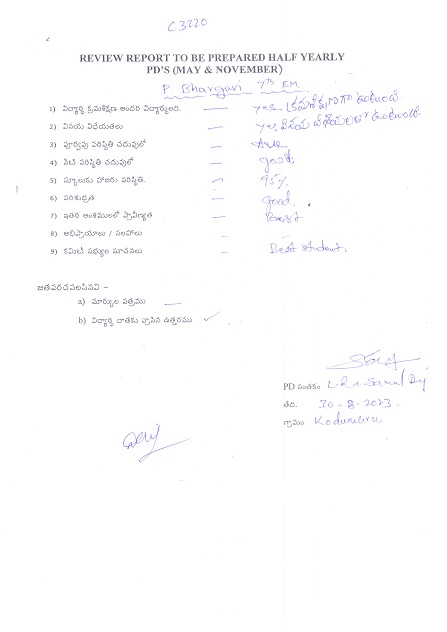 C3220
REVIEW REPORT TO BE PREPARED HALF YEARLY
PD'S (MAY & NOVEMBER)
P. Bhargavi 7th EM
1) విద్యార్థి క్రమశిక్షణ అందరి విద్యార్థులది. — yes, క్రమశిక్షణగా ఉంటుంది.
2) వినయ విధేయతలు — yes, వినయ విధేయతలతో ఉంటుంది.
3) పూర్వపు పరిస్థితి చదువులో —
4) నేటి పరిస్థితి చదువులో — good.
5) స్కూలుకు హాజరు పరిస్థితి. — 95%
6) పరిశుభ్రత — Good.
7) ఇతర అంశములలో ప్రావీణ్యత —
8) అభిప్రాయాలు / సలహాలు —
9) కమిటీ సభ్యుల సూచనలు — Best student.
జతపరచవలసినవి –
a) మార్కుల పత్రము —
b) విద్యార్థి దాతకు వ్రాసిన ఉత్తరము ✓
PD సంతకం
తేది. 30-8-2023.
గ్రామం Kodumuru